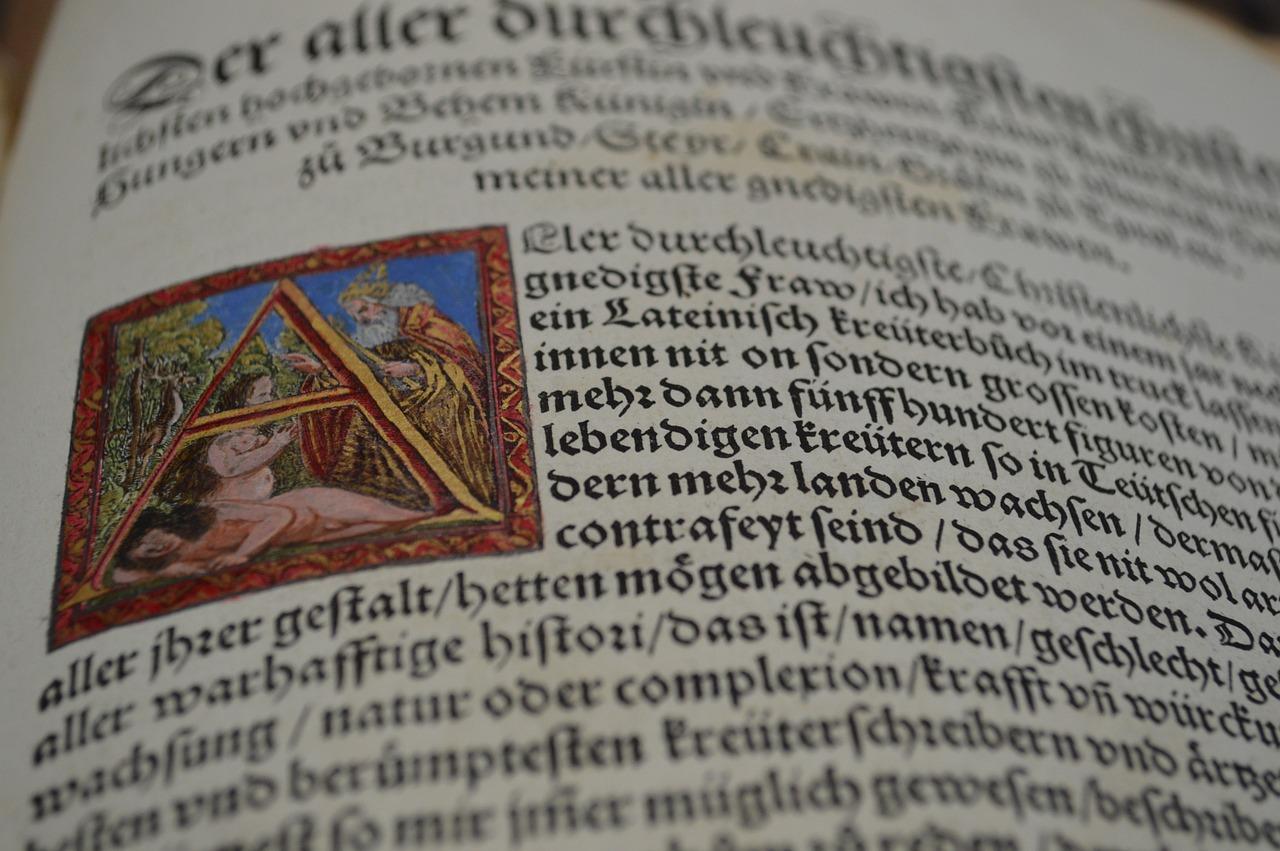 Der aller durchleuchtigſten Chriſten
liebſten hochgebornen Küngin vnd Frawen
Hungern vnd Behem Künigin / Ertzhertzogin zů
zů Burgund / Steyr / Crain / Gräfin zů Tyrol, etc.
meiner aller gnedigſten Frawen.
Aller durchleuchtigſte / Chriſtenlichſte
gnedigſte Fraw / ich hab vor einem jar
ein Lateiniſch kreüterbůch im truck laſſen
innen nit on ſondern groſſen koſten / mi
mehr dann fünff hundert figuren von
lebendigen kreütern ſo in Teütſchen
dern mehr landen wachſen / dermaſ
contrafeyt ſeind / das ſie nit wol ar
aller jhrer geſtalt / hetten mögen abgebildet werden. Da
aller warhafftige hiſtori / das iſt / namen / geſchlecht / ge
wachſung / natur oder complexion / krafft vñ würcku
beſten vnd berümpteſten kreüterſchreibern vnd ärtze
ſo mir jm̃er müglich geweſen / beſchribe
zů reden